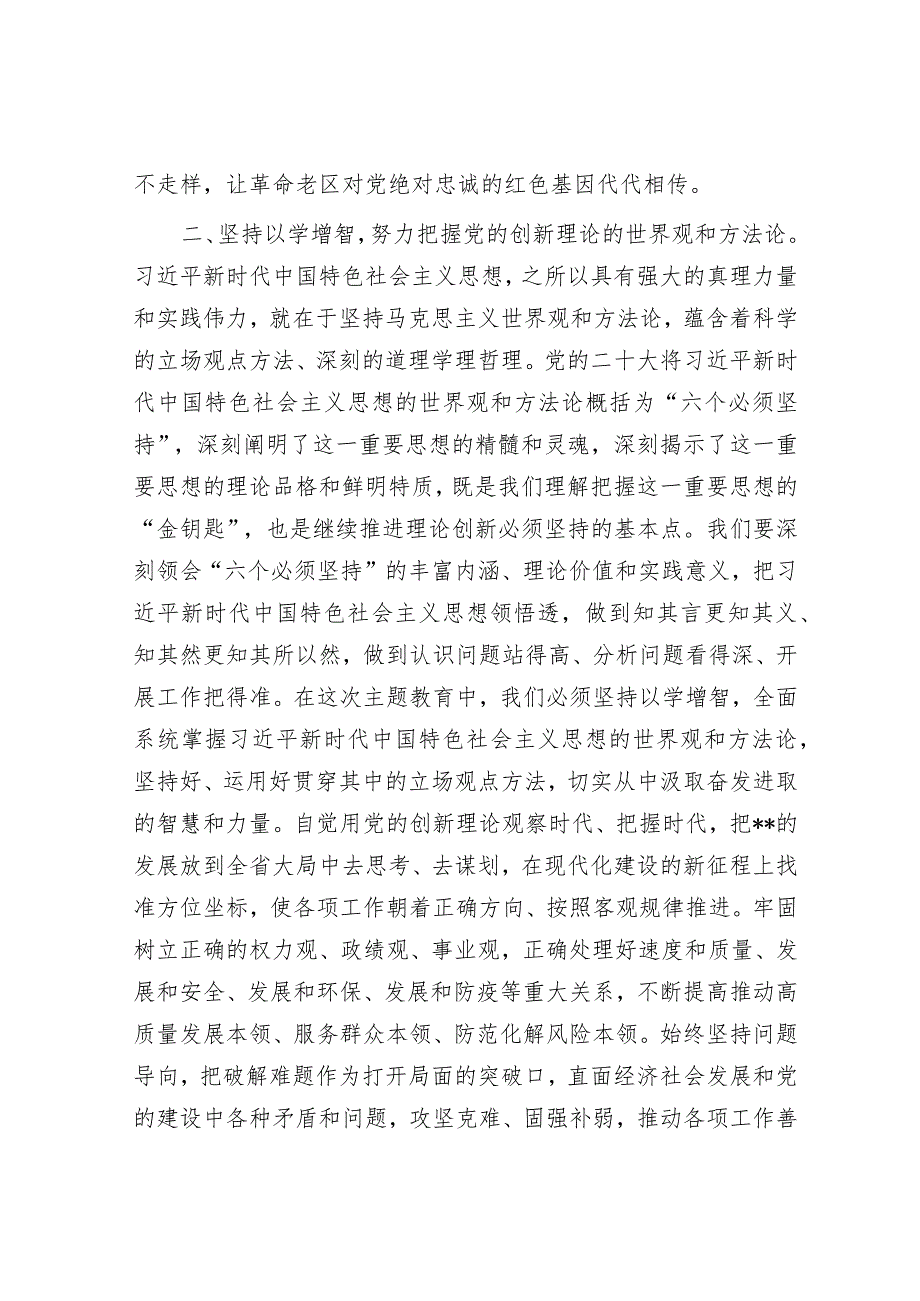 不走样，让革命老区对党绝对忠诚的红色基因代代相传。
二、坚持以学增智，努力把握党的创新理论的世界观和方法论。
习近平新时代中国特色社会主义思想，之所以具有强大的真理力量
和实践伟力，就在于坚持马克思主义世界观和方法论，蕴含着科学
的立场观点方法、深刻的道理学理哲理。党的二十大将习近平新时
代中国特色社会主义思想的世界观和方法论概括为“六个必须坚
持”，深刻阐明了这一重要思想的精髓和灵魂，深刻揭示了这一重
要思想的理论品格和鲜明特质，既是我们理解把握这一重要思想的
“金钥匙”，也是继续推进理论创新必须坚持的基本点。我们要深
刻领会“六个必须坚持”的丰富内涵、理论价值和实践意义，把习
近平新时代中国特色社会主义思想领悟透，做到知其言更知其义、
知其然更知其所以然，做到认识问题站得高、分析问题看得深、开
展工作把得准。在这次主题教育中，我们必须坚持以学增智，全面
系统掌握习近平新时代中国特色社会主义思想的世界观和方法论，
坚持好、运用好贯穿其中的立场观点方法，切实从中汲取奋发进取
的智慧和力量。自觉用党的创新理论观察时代、把握时代，把**的
发展放到全省大局中去思考、去谋划，在现代化建设的新征程上找
准方位坐标，使各项工作朝着正确方向、按照客观规律推进。牢固
树立正确的权力观、政绩观、事业观，正确处理好速度和质量、发
展和安全、发展和环保、发展和防疫等重大关系，不断提高推动高
质量发展本领、服务群众本领、防范化解风险本领。始终坚持问题
导向，把破解难题作为打开局面的突破口，直面经济社会发展和党
的建设中各种矛盾和问题，攻坚克难、固强补弱，推动各项工作善